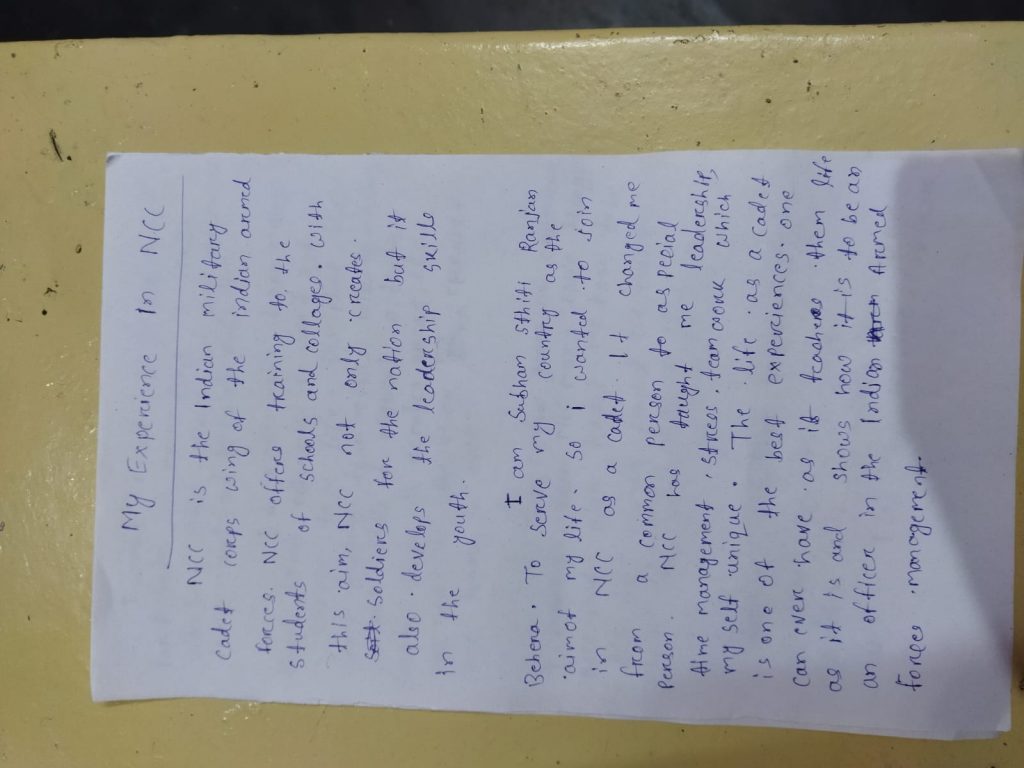 My Experience In NCC
NCC is the Indian military
cadet corps wing of the indian armed
forces. NCC offers training to the
students of schools and collages. with
this aim, NCC not only creates
soldiers for the nation but it
also develops the leadership skills
in the youth.
I am Subham sthiti Ranjan
Behera. To serve my country as the
aim of my life. so i wanted to join
in NCC as a cadet. It changed me
from a common person to aspecial
person. NCC has taught me leadership,
time management, stress, teamwork which
my self unique. The life as a cadet
is one of the best experiences. one
can ever have as it teaches them life
as it is and shows how it is to be an
an officer in the Indian Armed
forces management.